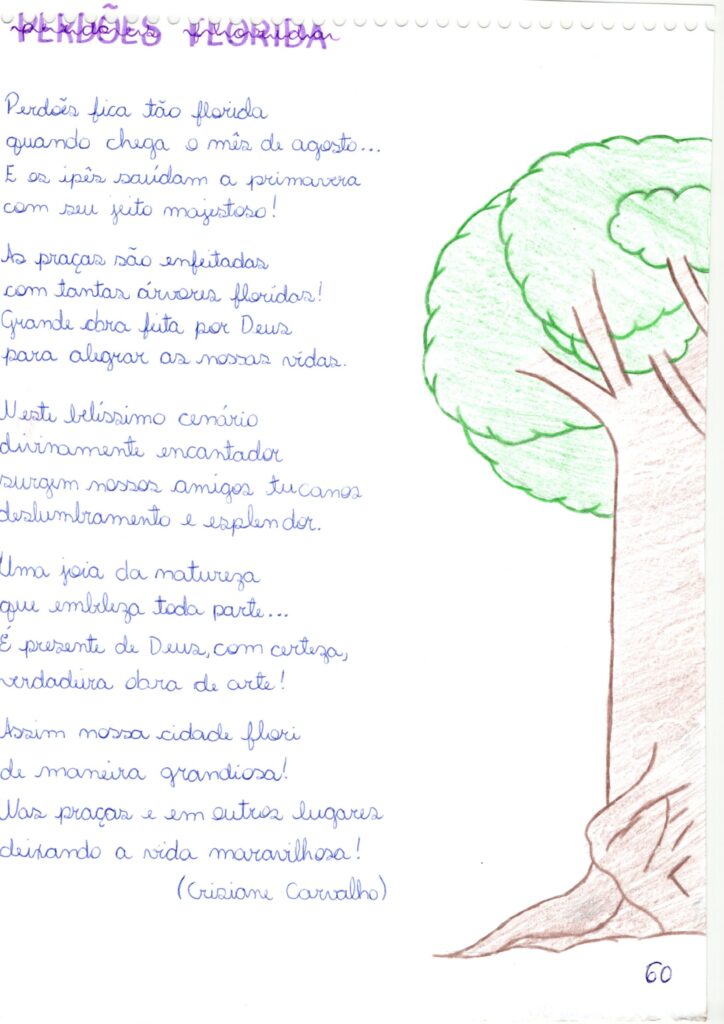 PERDÕES FLORIDA
perdões florida
Perdões fica tão florida
quando chega o mês de agosto...
E os ipês saúdam a primavera
com seu jeito majestoso!
As praças são enfeitadas
com tantas árvores floridas!
Grande obra feita por Deus
para alegrar as nossas vidas.
Neste belíssimo cenário
divinamente encantador
surgem nossos amigos tucanos
deslumbramento e esplendor.
Uma joia da natureza
que embeleza toda parte...
É presente de Deus, com certeza,
verdadeira obra de arte!
Assim nossa cidade flori
de maneira grandiosa!
Nas praças e em outros lugares
deixando a vida maravilhosa!
(Crisiane Carvalho)
60